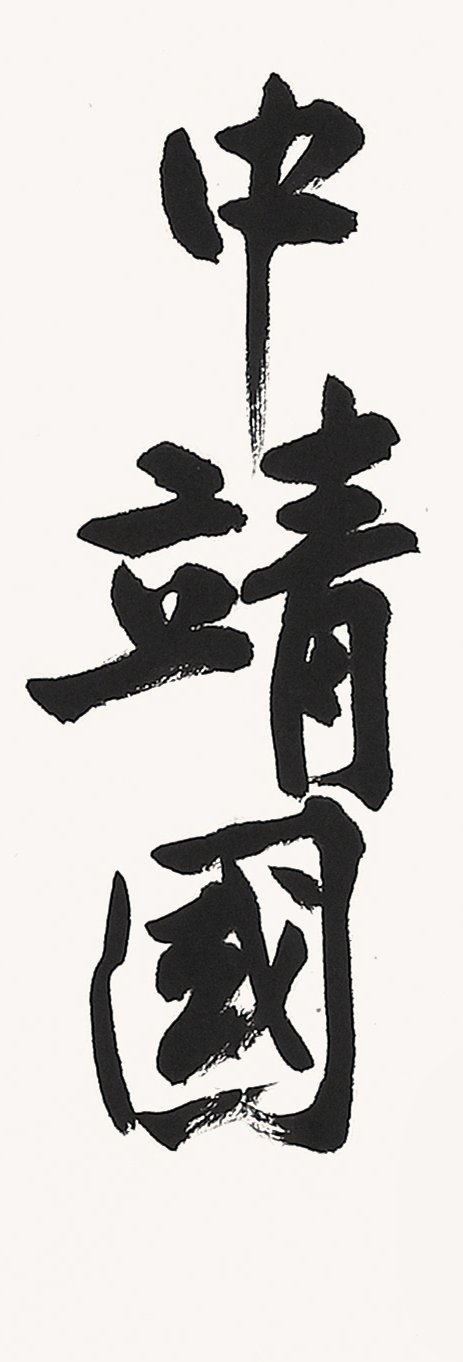 中靖國